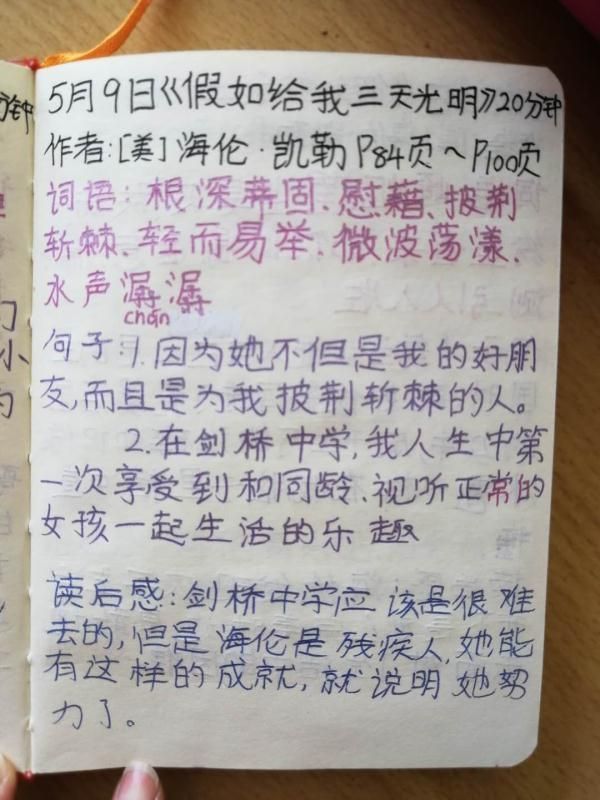 5月9日《假如给我三天光明》20分钟
作者:[美]海伦·凯勒 P84页~P100页
词语:根深蒂固、慰藉、披荆
斩棘、轻而易举、微波荡漾、
水声潺潺
chán
句子:1.因为她不但是我的好朋
友,而且是为我披荆斩棘的人。
2.在剑桥中学,我人生中第
一次享受到和同龄、视听正常的
女孩一起生活的乐趣
读后感:剑桥中学应该是很难
去的,但是海伦是残疾人,她能
有这样的成就,就说明她努
力了。